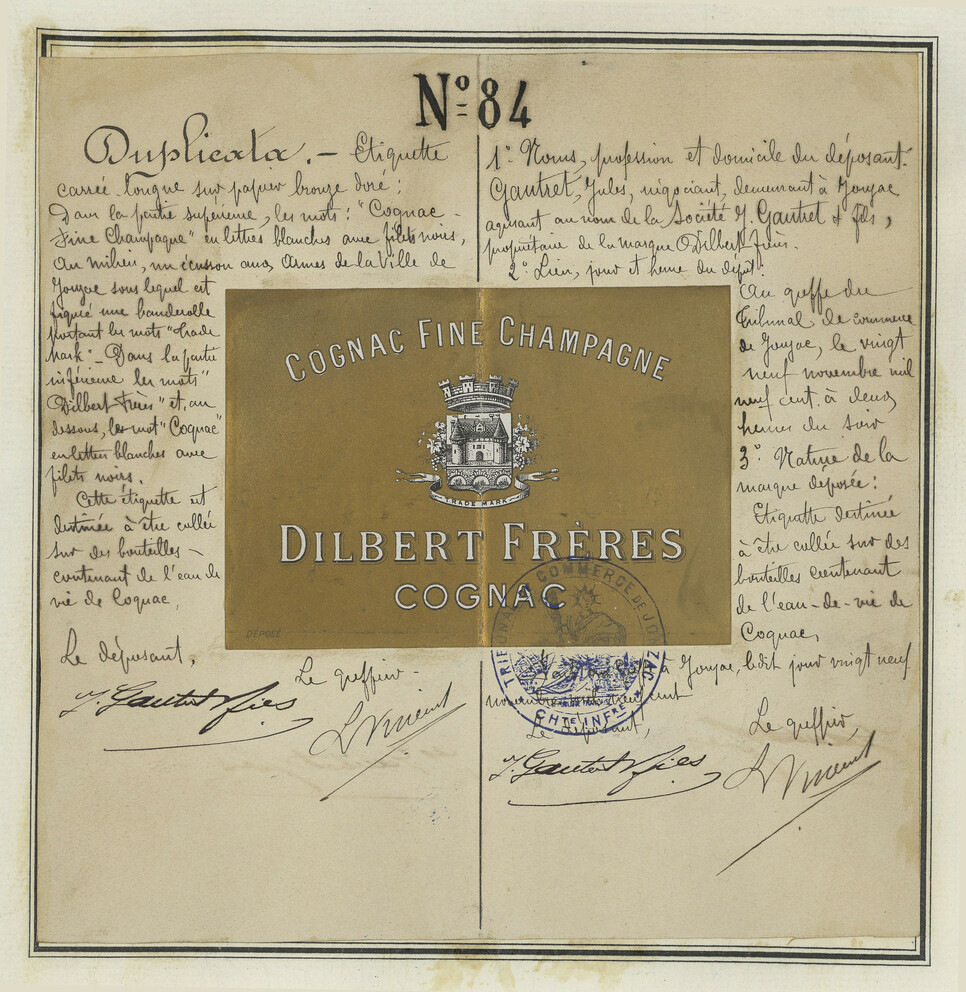 Nº 84
Duplicata. — Etiquette
carrée-longue sur papier bronze doré :
Dans la partie supérieure, les mots : "Cognac -
Fine Champagne" en lettres blanches avec filets noirs,
Au milieu, un écusson aux Armes de la Ville de
Jonzac sous lequel est
figuré une banderolle
portant les mots "Trade
Mark" - Dans la partie
inférieure les mots "
Dilbert Frères" et, au
dessous, le mot "Cognac"
en lettres blanches avec
filets noirs.
Cette étiquette est
destinée à être collée
sur des bouteilles -
contenant de l'eau de
vie de Cognac,
Le déposant,
J. Gautret & fils
Le greffier
L Vincent
1º Noms, profession et domicile du déposant.
Gautret, Jules, négociant, demeurant à Jonzac
agissant au nom de la Société J. Gautret & fils,
propriétaire de la marque Dilbert frères.
2º Lieu, jour et heure du dépôt.
Au greffe du
Tribunal de commerce
de Jonzac, le vingt
neuf novembre mil
neuf cent. à deux
heures du soir
3º Nature de la
marque déposée :
Etiquette destinée
à être collée sur des
bouteilles contenant
de l'eau-de-vie de
Cognac,
à Jonzac, ledit jour vingt neuf
novembre mil neuf cent
Le déposant,
J. Gautret & fils
Le greffier,
L Vincent
COGNAC FINE CHAMPAGNE
TRADE MARK
DILBERT FRÈRES
COGNAC
DÉPOSÉ
TRIBUNAL DE COMMERCE DE JONZAC
CHTE INFRE